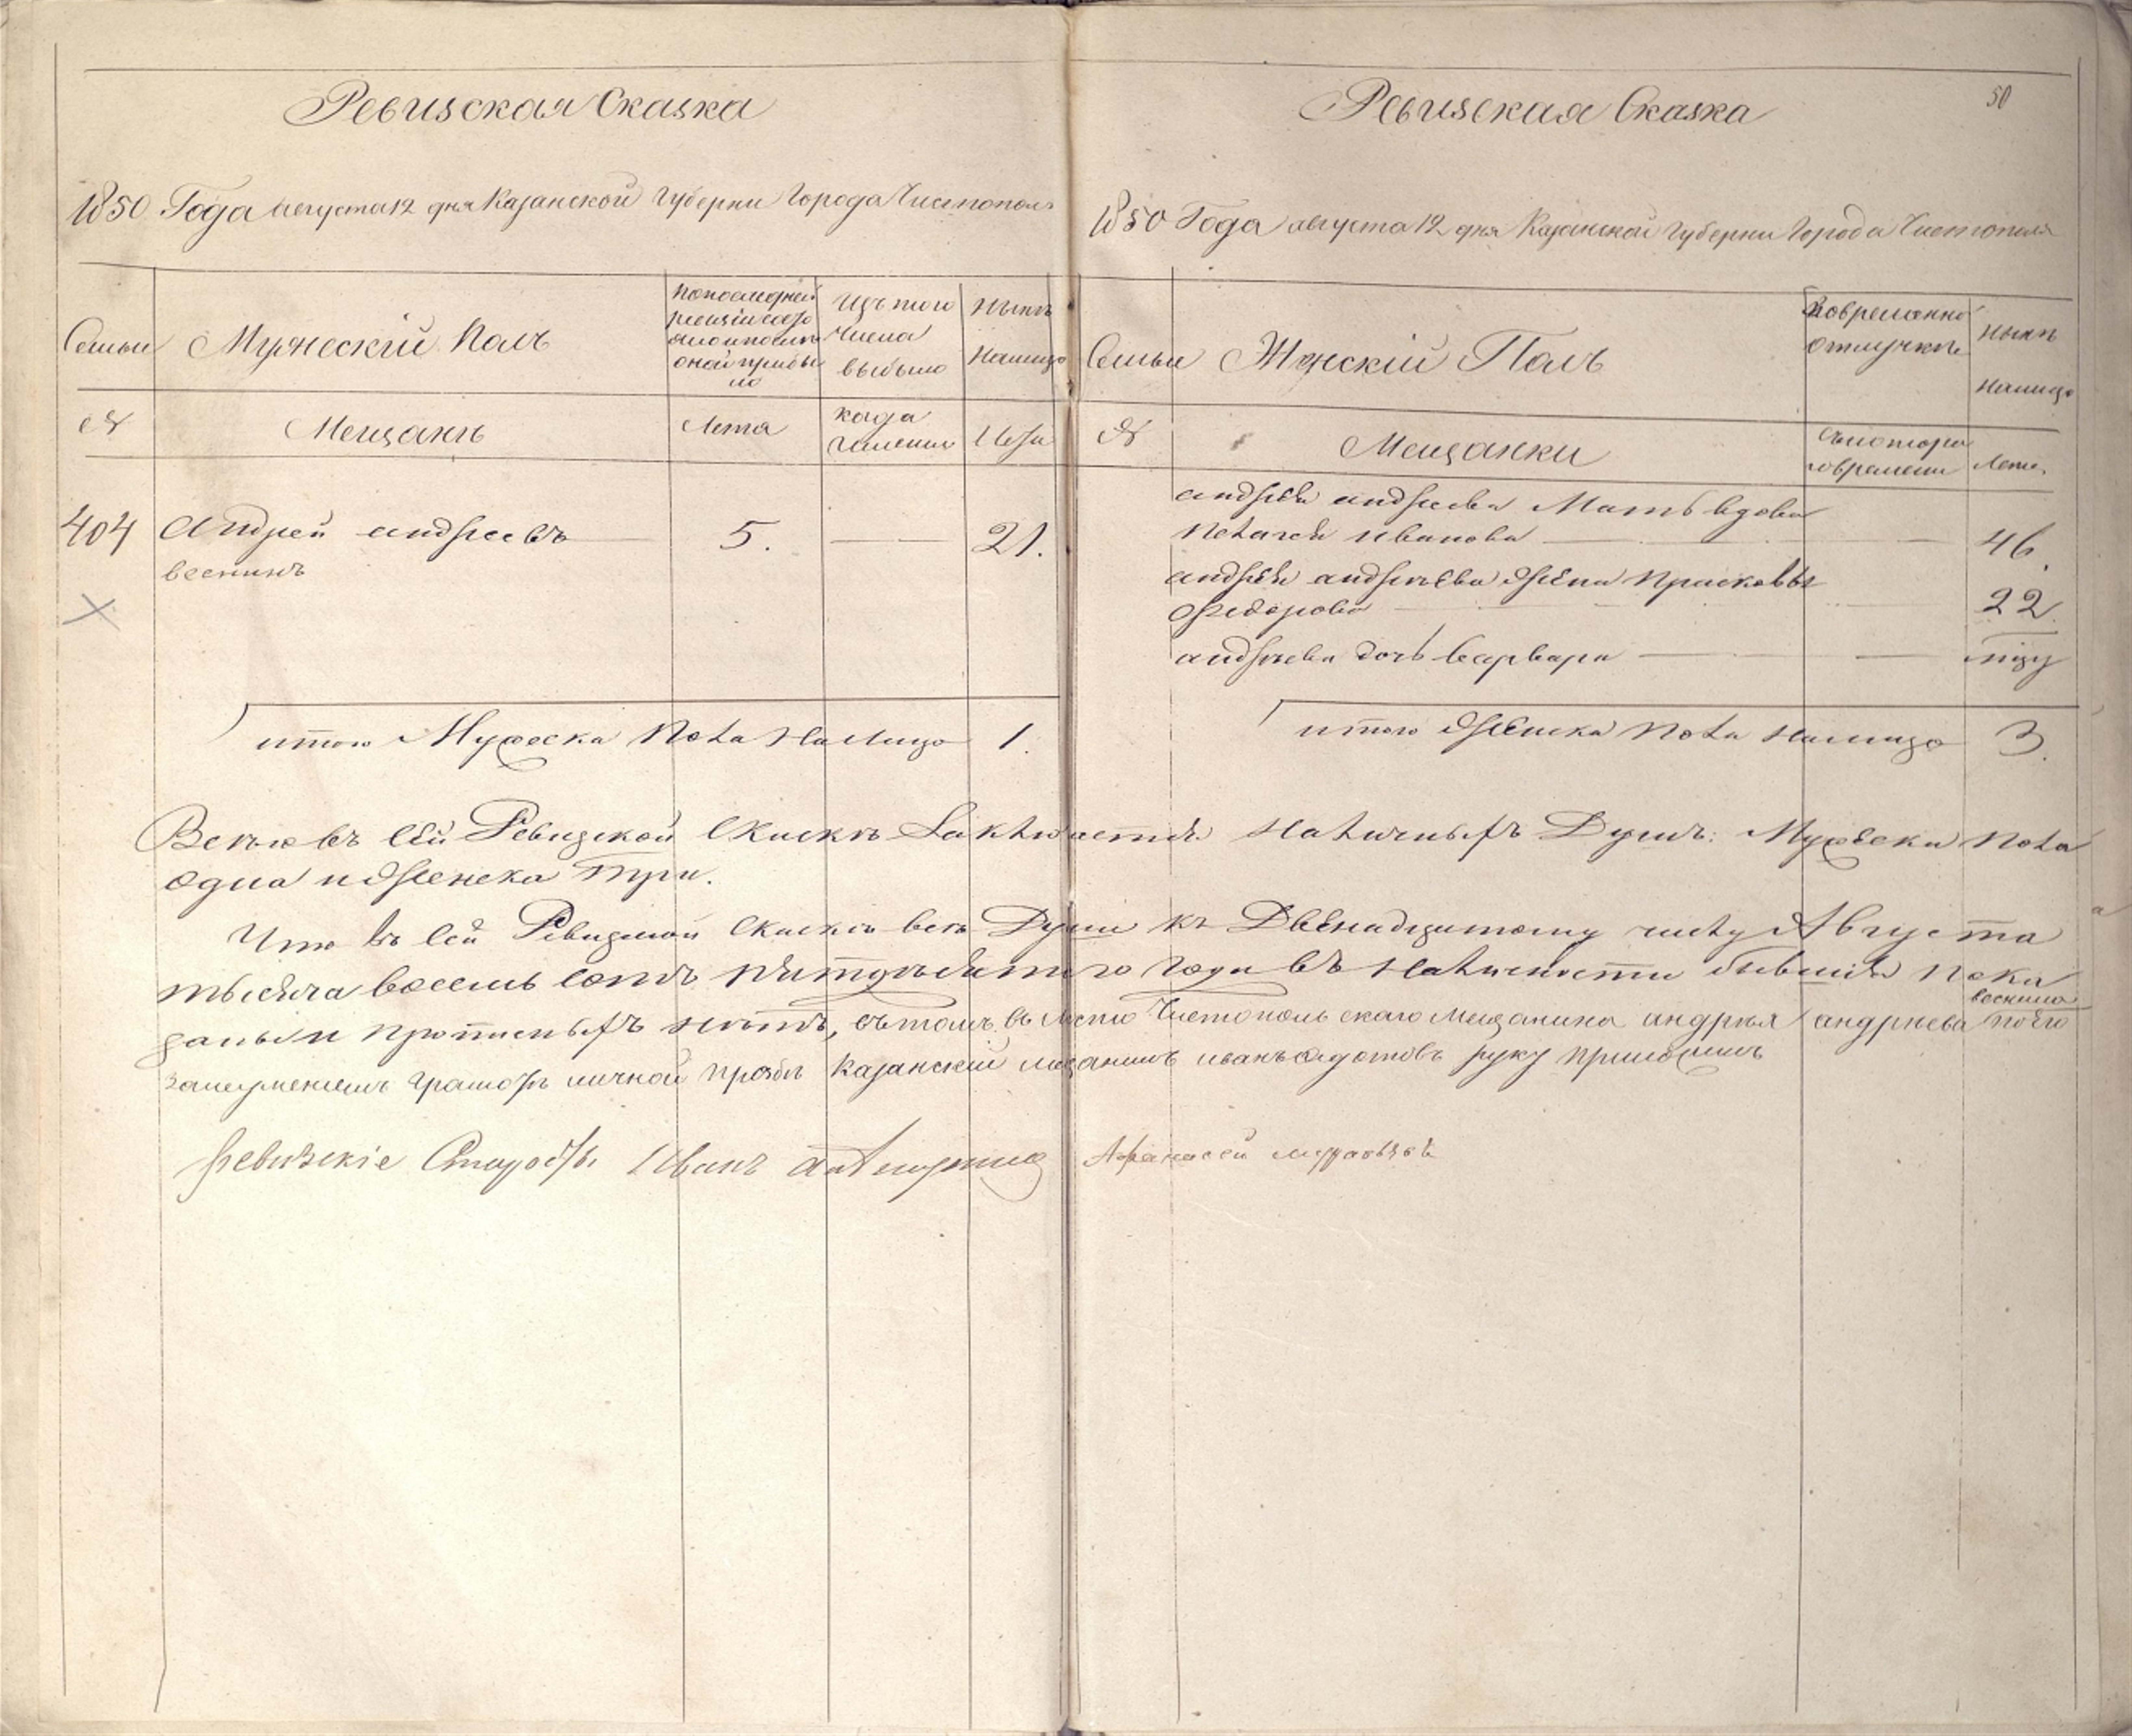 Ревизская Сказка
1850 Года августа 12 дня Казанской Губернии Города Чистополя
Семьи
Мужескій Полъ
По последней
ревизіи состо
яло и после
оной прибы
ло
Изъ того
Числа
выбыло
Ныне
Налицо
№
Мещанъ
Лета
когда
Лета
404 Андрей андреевъ 5. 21.
веснинъ
итого Мужеска Пола На лицо 1.
50
Ревизская Сказка
1850 Года августа 12 дня Казанской Губернии Города Чистополя
Семьи
Женскій Полъ
Во временной
отлучке
Ныне
Налицо
№
Мещанки
съ котораго
времени
Лета
андрея андреева Мать вдова
Пелагея Иванова 46.
андрея андреева жена Прасковья
Федорова 22.
андреева дочь варвара
итого женска Пола налицо 3.
Всего въ сей Ревизской Скаске Заключается Наличныхъ Душъ: Мужеска Пола
одна и женска три.
Что въ сей Ревизской Скаске все Души къ Двенадцатому числу Августа
тысяча восемь сотъ пятдесятого года въ Наличности бывшія Пока
заны и прописныхъ нетъ, въ томъ, въ место Чистопольскаго Мещанина андрея андреева веснина по его
Казанскій мещанинъ иванъ Федотовъ руку приложилъ
Ревизскіе Иванъ
Афанасей